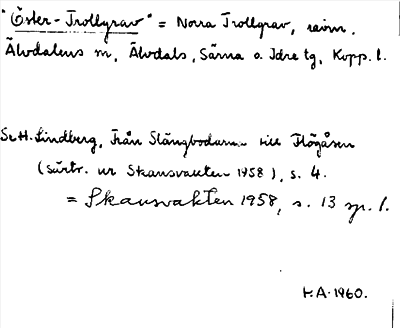 "Öster-Trollgrav" = Norra Trollgrav, ravin.
Älvdalens m, Älvdals, Särna o. Idre tg, Kopp. l.
St. H. Lindberg, Från Slängbodarna till Flögåsen
(särtr. ur Skansvakten 1958), s. 4.
= Skansvakten 1958, s. 13 sp. 1.
H.A. 1960.